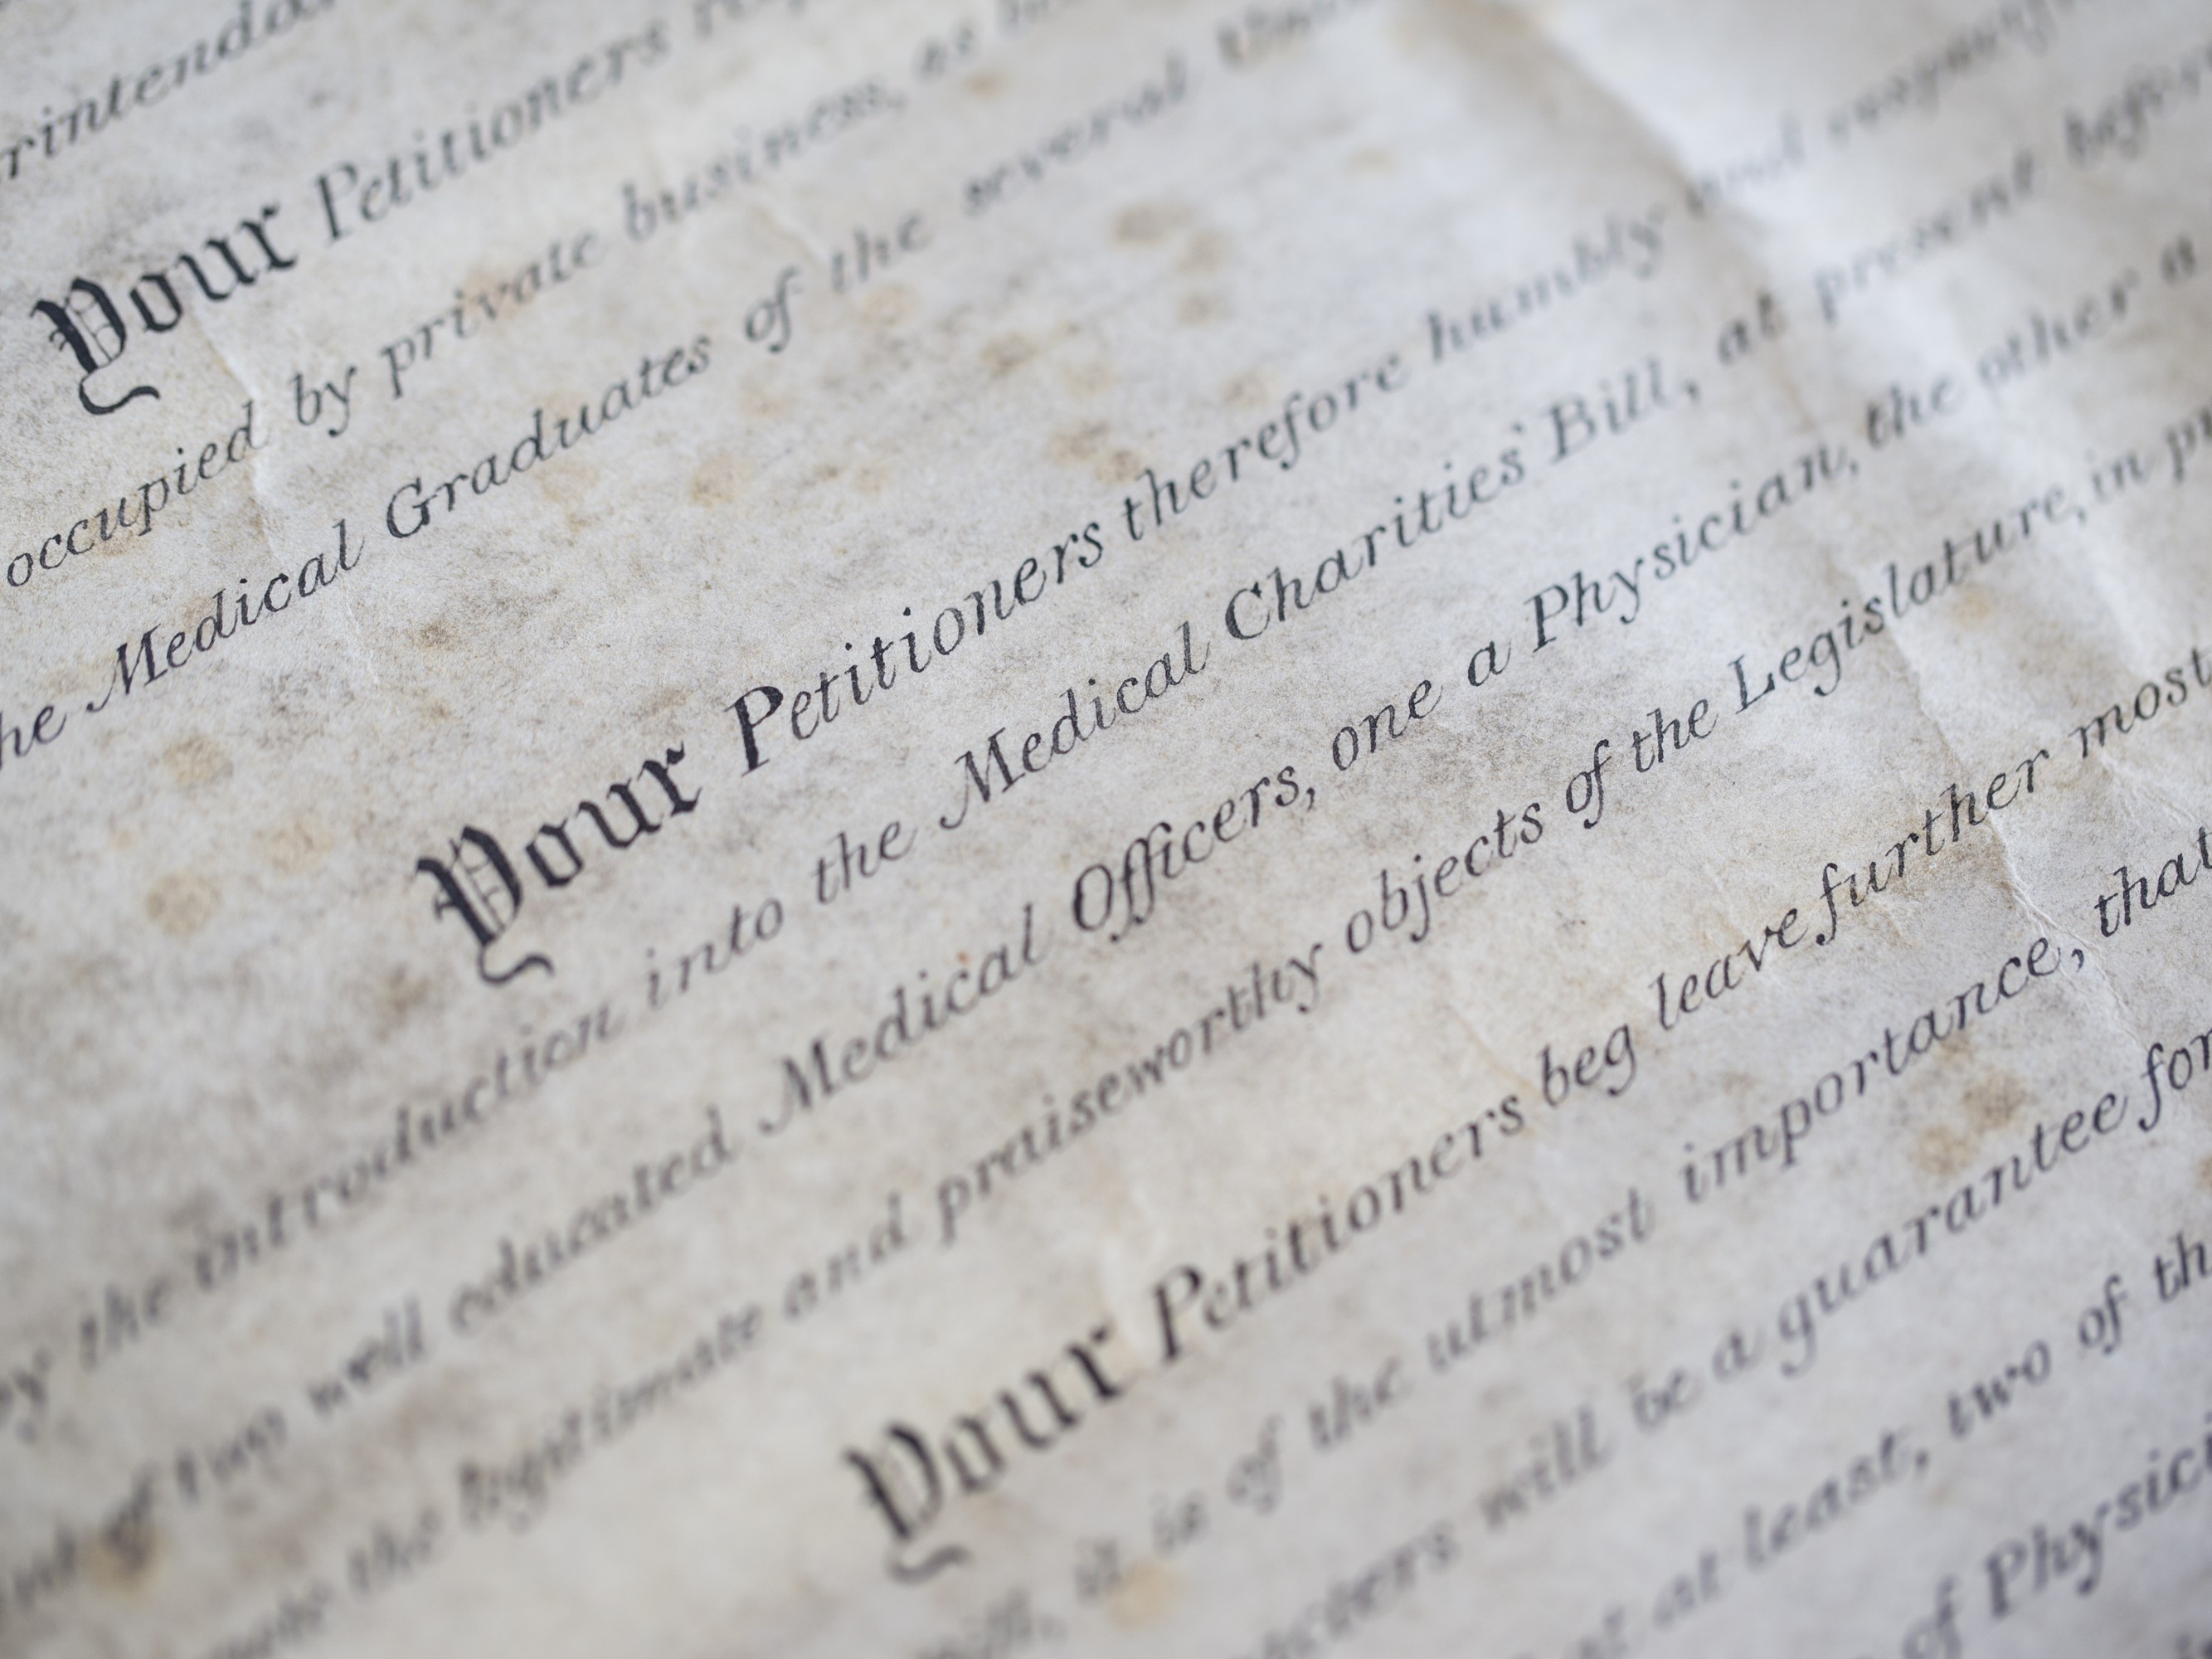 Your Petitioners
occupied by private business, as
the Medical Graduates of the several
Your Petitioners therefore humbly and
by the introduction into the Medical Charities' Bill, at present before
of two well educated Medical Officers, one a Physician, the other a
the legitimate and praiseworthy objects of the Legislature, in
Your Petitioners beg leave further most
it is of the utmost importance, that
will be a guarantee for
at least, two of
of